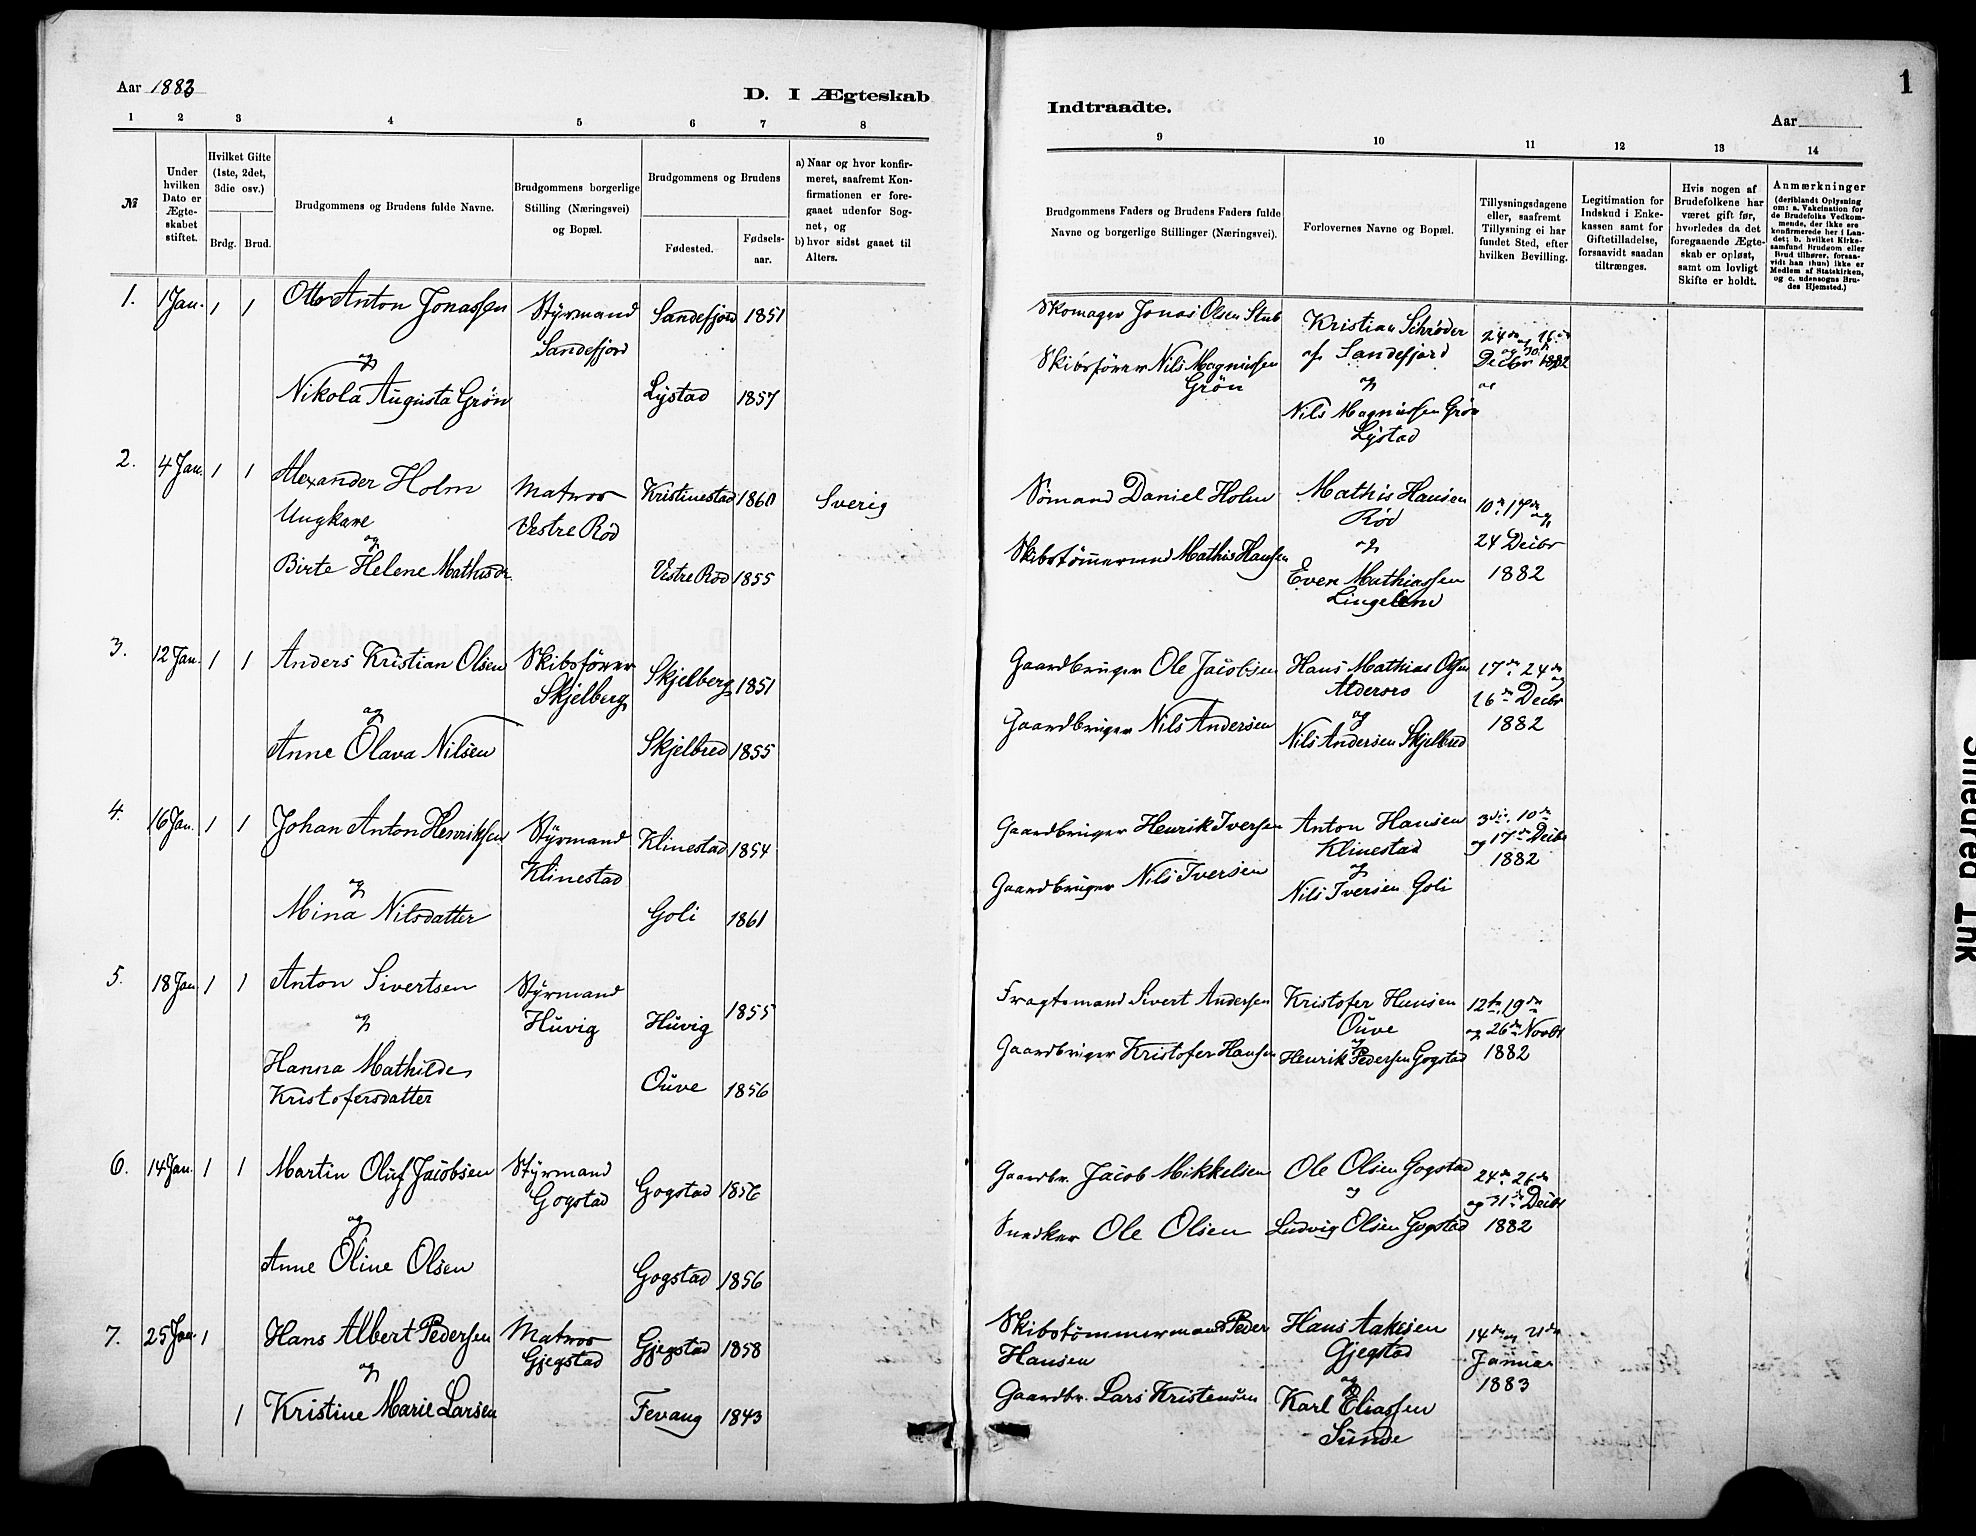 Aar 1883
D. I Ægteskab
1 2 3 4 5 6 7 8
№
Under hvilken Dato er Ægteskabet stiftet.
Hvilket Gifte (1ste, 2det, 3die osv.)
Brdg. Brud.
Brudgommens og Brudens fulde Navne.
Brudgommens borgerlige Stilling (Næringsvei) og Bopæl.
Brudgommens og Brudens
Fødested.
Fødsels-aar.
a) Naar og hvor konfir-
meret, saafremt Kon-
firmationen er fore-
gaaet udenfor Sog-
net, og
b) hvor sidst gaaet til
Alters.
1. 1 Jan. 1 1 Otto Anton Jonassen Styrmand Sandefjord 1851
Sandefjord
og
Nikola Augusta Grøn Lystad 1857
2. 4 Jan. 1 1 Alexander Holm Matros Kristinestad 1860 Sverig
Ungkare Vestre Rød
og
Birte Helene Mathisdr. Vestre Rød 1855
3. 12 Jan. 1 1 Anders Kristian Olsen Skibsfører Skjelberg 1851
Skjelberg
og
Anne Olava Nilsen Skjelbred 1855
4. 16 Jan. 1 1 Johan Anton Henriksen Styrmand Klinestad 1854
Klinestad
og
Mina Nilsdatter Goli 1861
5. 18 Jan 1 1 Anton Sivertsen Styrmand 1855
og Huvig Huvig
Hanna Mathilde
Kristofersdatter Ouve 1856
6. 14 Jan. 1 1 Martin Oluf Jacobsen Styrmand Gogstad 1856
Gogstad
og
Anne Oline Olsen Gogstad 1856
7. 25 Jan. 1 Hans Albert Pedersen Matros Gjegstad 1858
Gjegstad
og
1 Kristine Marie Larsen Fevang 1843
1
Indtraadte.
Aar
9 10 11 12 13 14
Brudgommens Faders og Brudens Faders fulde
Navne og borgerlige Stillinger (Næringsvei).
Forlovernes Navne og Bopæl.
Tillysningsdagene
eller, saafremt
Tillysning ei har
fundet Sted, efter
hvilken Bevilling.
Legitimation for
Indskud i Enke-
kassen samt for
Giftetilladelse,
forsaavidt saadan
tiltrænges.
Hvis nogen af
Brudefolkene har
været gift før,
hvorledes da det
foregaaende Ægte-
skab er opløst,
samt om lovligt
Skifte er holdt.
Anmærkninger
(deriblandt Oplysning
om: a. Vakcination for
de Brudefolks Vedkom-
mende, der ikke ere
konfirmerede her i Lan-
det; b. hvilket Kirke-
samfund Brudgom eller
Brud tilhører, forsaa-
vidt han (hun) ikke er
Medlem af Statskirken,
og c. udensogns Bru-
des Hjemsted.)
Skomager Jonas Olsen Stub Kristian Schrøder
af Sandefjord
Decbr 1882
Skibsfører Nils Magnussen
Grøn
og
Nils Magnussen Grøn
Lystad
Sømand Daniel Holm Mathis Hansen 10de 17de og
Rød
og 24 Decbr
Skibstømmermd Mathis Hansen 1882
Even Mathiassen
Gaardbruger Ole Jacobsen Hans Mathias Olsen 17de 24de og
26de Decbr
Gaardbruger Nils Andersen og 1882
Nils Andersen Skjelbred
Gaardbruger Henrik Iversen Anton Hansen 3die, 10de
Klinestad og 17de Decbr
og 1882
Gaardbruger Nils Iversen Nils Iversen Goli
Fragtemand Sivert Andersen Kristofer Hansen 12te, 19de
Ouve og 26de Novbr
og 1882
Gaardbruger Kristofer Hansen Henrik Pedersen Gogstad
Gaardbr. Jacob Mikkelsen Ole Olsen Gogstad 24de 26de
og og 31te Decbr
Snedker Ole Olsen Ludvig Olsen Gogstad 1882
Skibstømmermand Peder Hans Aakesen 14de og 21de
Hansen Gjegstad Januar
og 1883
Gaardbr. Lars Kristensen Karl Eliassen
Sunde